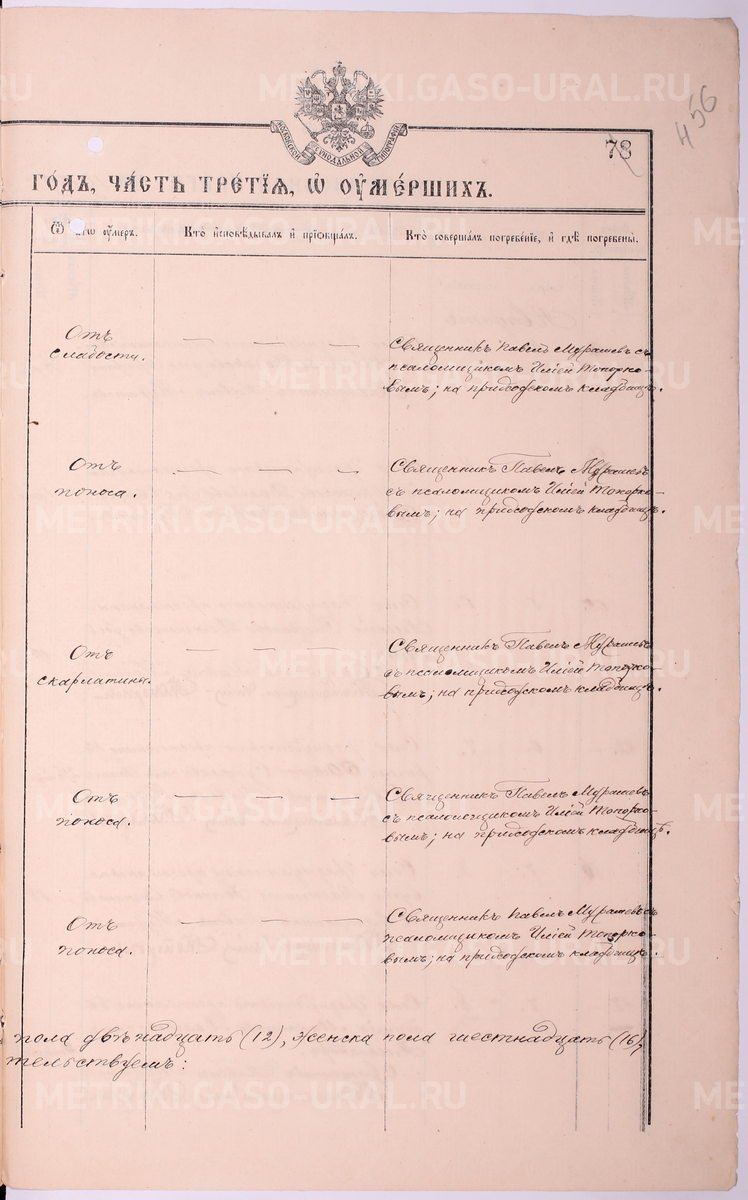 METRIKI.GASO-URAL.RU
456
МОСКОВСКОЙ СѴНОДАЛЬНОЙ ТИПОГРАФІИ
78
ГО́ДЪ, ЧА́СТЬ ТРЕ́ТІѦ, Ѡ ОУМЕ́РШИХЪ.
Ѿ чегѡ оумеръ.
Кто̀ и҆сповѣ́дывалъ и҆ прїѡбща́лъ.
Кто̀ соверша́лъ погребе́нїе, и҆ гдѣ̀ погребены̀.
Отъ
слабости.
— — —
Священникъ Павелъ Мурашевъ съ
псаломщикомъ Иліей Топорко-
вымъ; на приходскомъ кладбищѣ.
Отъ
поноса.
— — —
Священникъ Павелъ Мурашевъ
съ псаломщикомъ Иліей Топорко-
вымъ; на приходскомъ кладбищѣ.
Отъ
скарлатины.
— — —
Священникъ Павелъ Мурашевъ
съ псаломщикомъ Иліей Топорко-
вымъ; на приходскомъ кладбищѣ.
Отъ
поноса.
— — —
Священникъ Павелъ Мурашевъ
съ псаломщикомъ Иліей Топорко-
вымъ; на приходскомъ кладбищѣ.
Отъ
поноса.
— — —
Священникъ Павелъ Мурашевъ съ
псаломщикомъ Иліей Топорко-
вымъ; на приходскомъ кладбищѣ.
пола двѣнадцать (12), женска пола шестнадцать (16),
тельствуемъ: